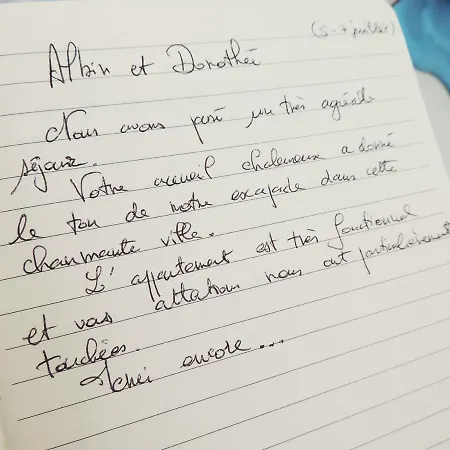 (5 - 7 juillet)
Albin et Dorothée
Nous avons passé un très agréable
séjour.
Votre accueil chaleureux a donné
le ton de notre escapade dans cette
charmante ville.
L'appartement est très fonctionnel
et vos attentions nous ont particulièrement
touchées.
Merci encore...